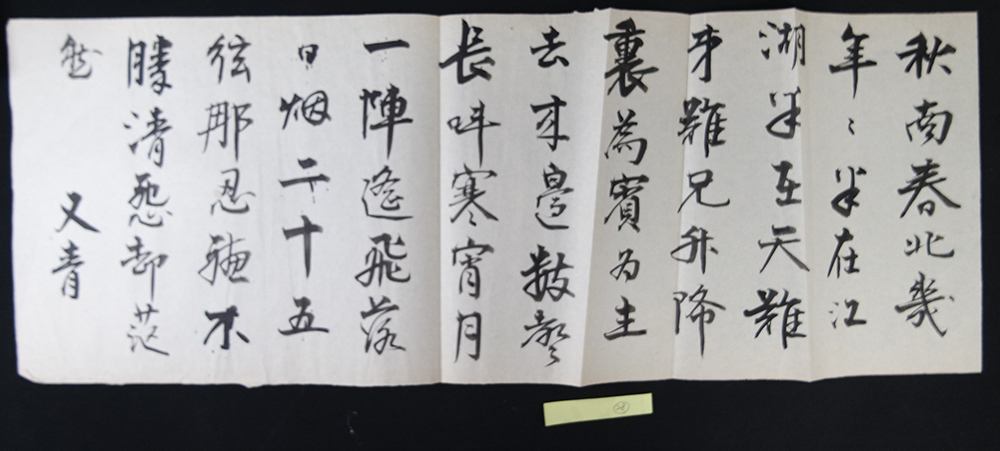 秋南春北幾
年〻半在江
湖半在天難
弟難兄升降
裏為賓為主
去來邊數聲
長叫寒宵月
一陣遙飛落
日烟二十五
弦那忍聽不
勝清怨却茫
然 又青
28